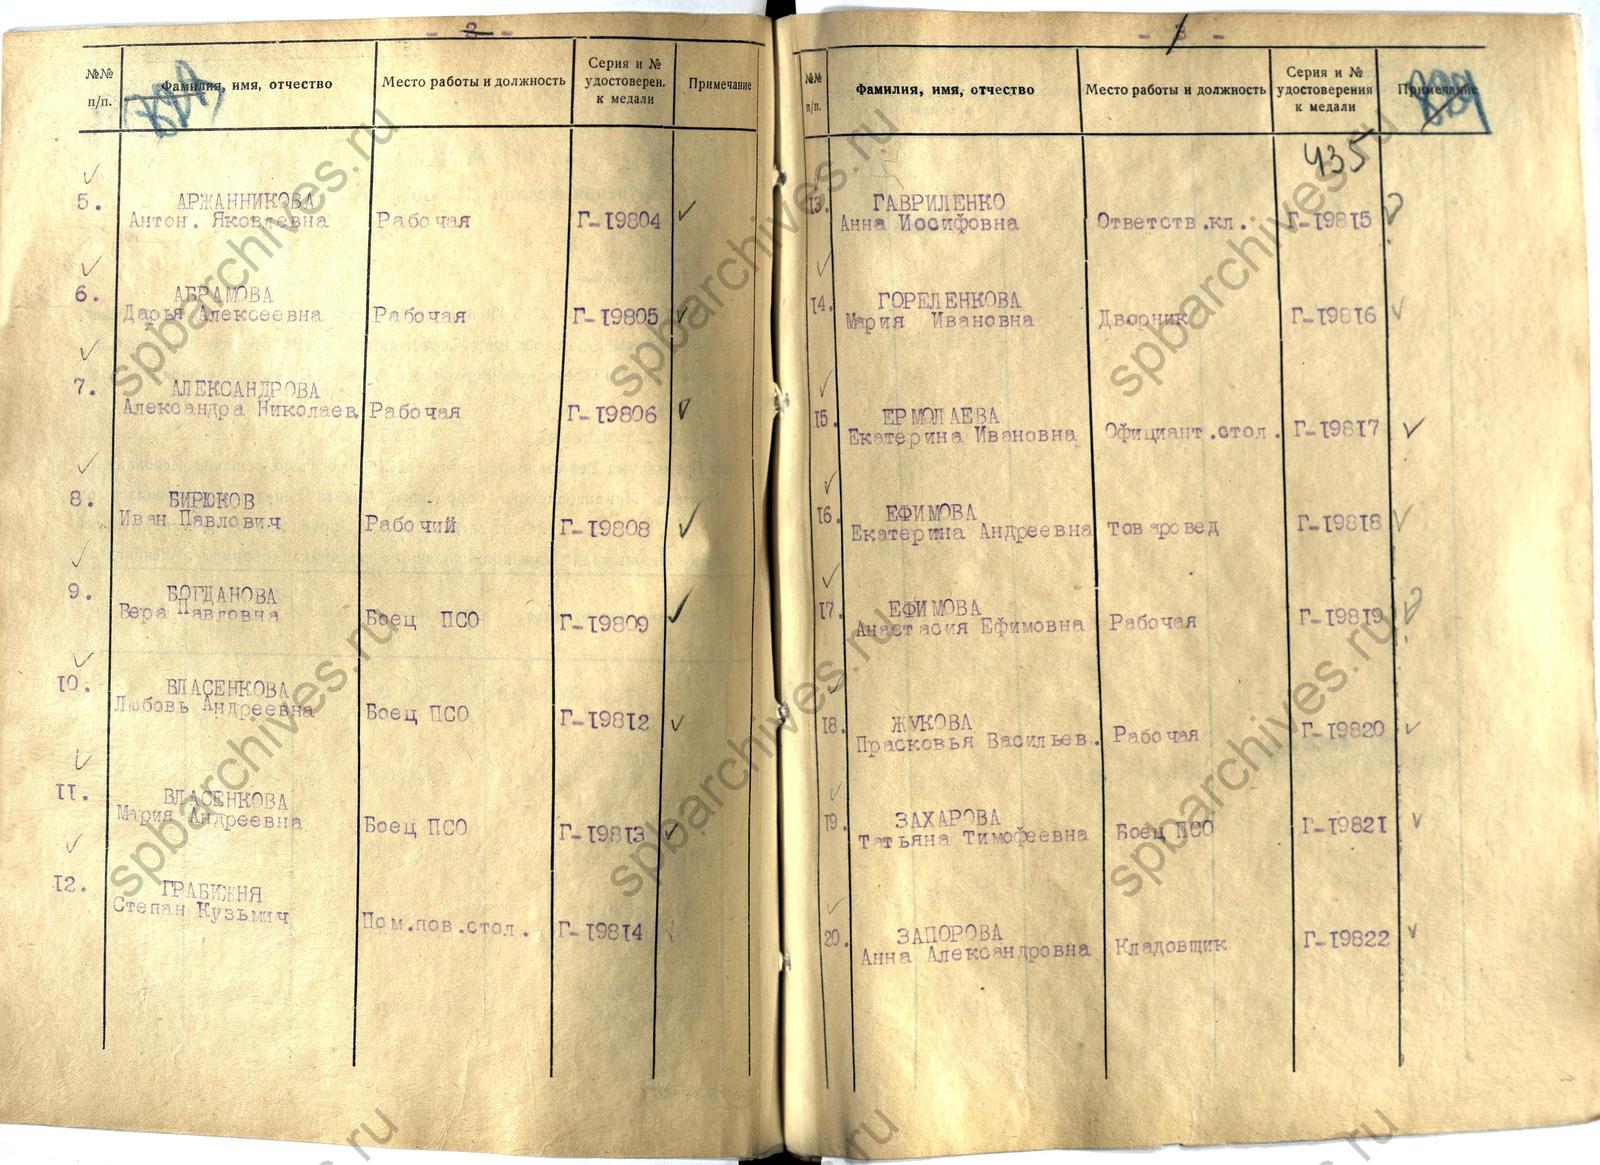 - 2 -
№№ п/п.
Фамилия, имя, отчество
Место работы и должность
Серия и № удостоверен. к медали
Примечание
5. АРЖАННИКОВА
Антон. Яковлевна Рабочая Г-19804
6. АБРАМОВА
Дарья Алексеевна Рабочая Г-19805
7. АЛЕКСАНДРОВА
Александра Николаев. Рабочая Г-19806
8. БИРЮКОВ
Иван Павлович Рабочий Г-19808
9. БОГДАНОВА
Вера Павловна Боец ПСО Г-19809
10. ВЛАСЕНКОВА
Любовь Андреевна Боец ПСО Г-19812
11. ВЛАСЕНКОВА
Мария Андреевна Боец ПСО Г-19813
12. ГРАБИЖНЯ
Степан Кузьмич Пом.пов.стол. Г-19814
- 3 -
№№ п/п.
Фамилия, имя, отчество
Место работы и должность
Серия и № удостоверения к медали
Примечание
435
13. ГАВРИЛЕНКО
Анна Иосифовна Ответств.кл. Г-19815
14. ГОРЕЛЕНКОВА
Мария Ивановна Дворник Г-19816
15. ЕРМОЛАЕВА
Екатерина Ивановна Официант.стол. Г-19817
16. ЕФИМОВА
Екатерина Андреевна товаровед Г-19818
17. ЕФИМОВА
Анастасия Ефимовна Рабочая Г-19819
18. ЖУКОВА
Прасковья Васильев. Рабочая Г-19820
19. ЗАХАРОВА
Татьяна Тимофеевна Боец ПСО Г-19821
20. ЗАПОРОВА
Анна Александровна Кладовщик Г-19822
spbarchives.ru
spbarchives.ru
spbarchives.ru
spbarchives.ru
spbarchives.ru
spbarchives.ru